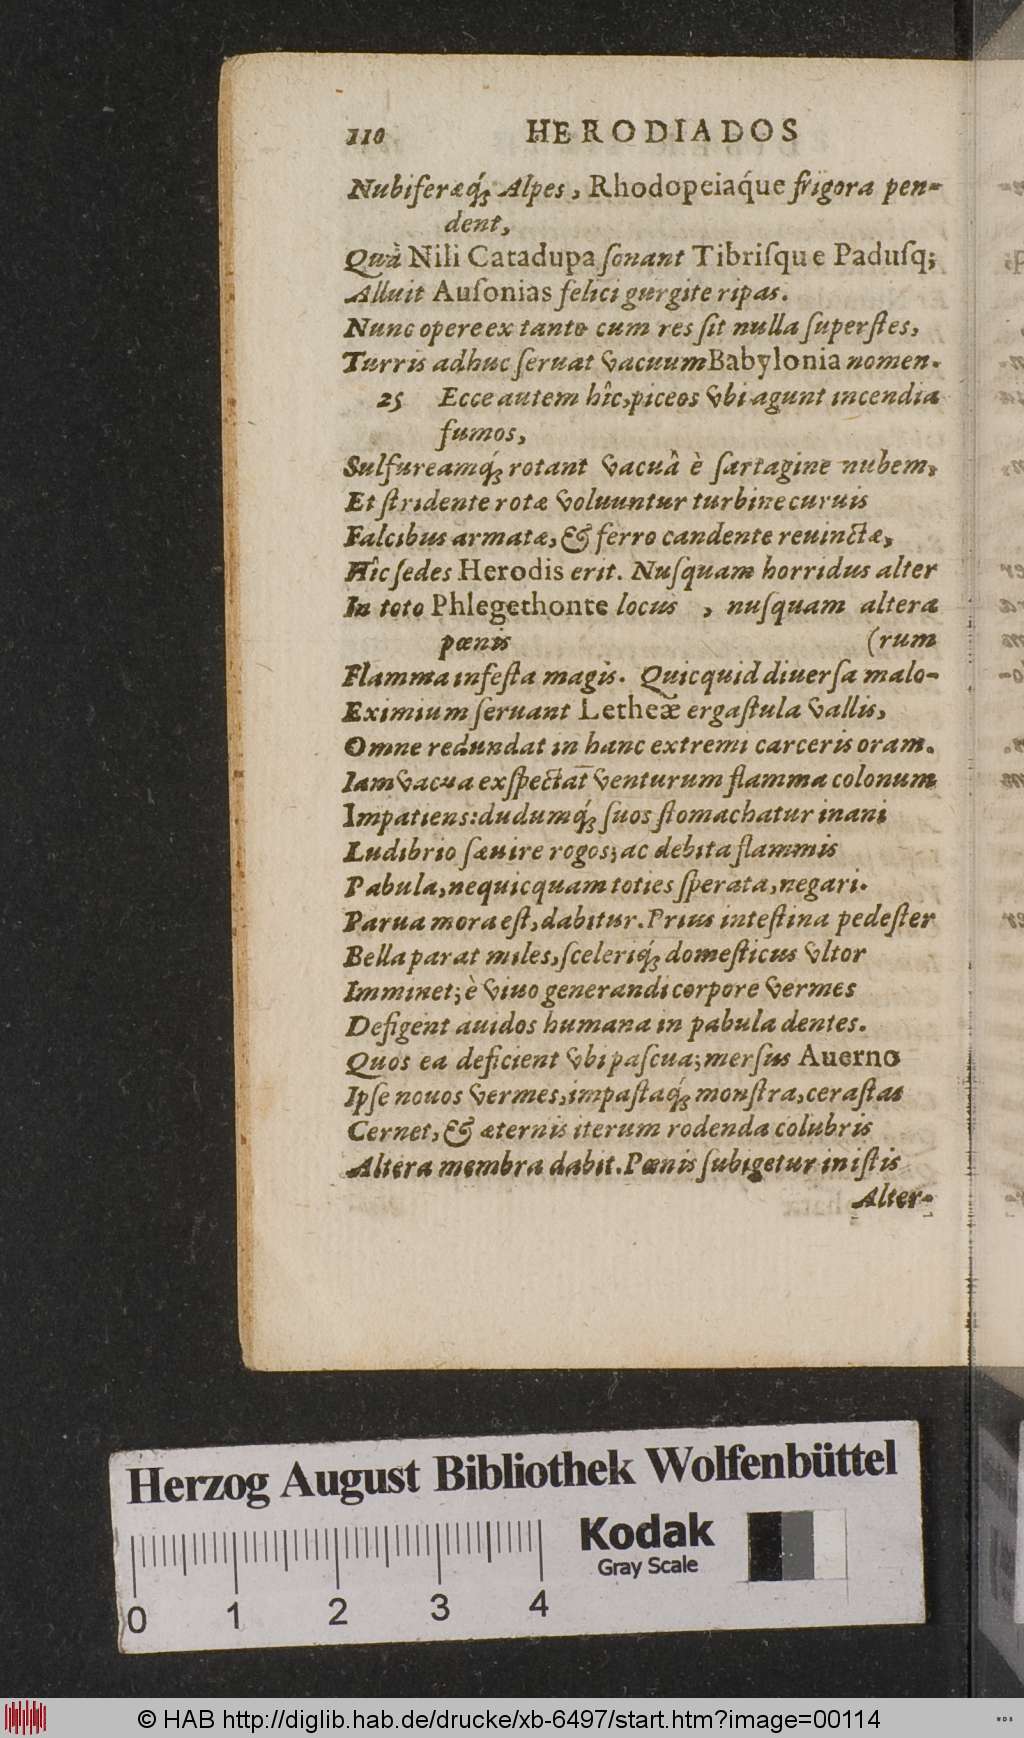 110 HERODIADOS
Nubiferæq́; Alpes, Rhodopeiaq́ue frigora pen-
dent,
Quà Nili Catadupa ſonant Tibriſque Paduſq;
Alluit Auſonias felici gurgite ripas.
Nunc opere ex tanto cum res ſit nulla ſuperſtes,
Turris adhuc ſeruat vacuum Babylonia nomen.
25 Ecce autem hîc, piceos vbi agunt incendia
fumos,
Sulfureamq́; rotant vacuâ è ſartagine nubem,
Et ſtridente rotæ voluuntur turbine curuis
Falcibus armatæ, & ferro candente reuinctæ,
Hîc ſedes Herodis erit. Nuſquam horridus alter
In toto Phlegethonte locus , nuſquam altera
pœnis (rum
Flamma infeſta magis. Quicquid diuerſa malo-
Eximium ſeruant Letheæ ergaſtula vallis,
Omne redundat in hanc extremi carceris oram.
Iam vacua exſpectat venturum flamma colonum
Impatiens: dudumq́; ſuos ſtomachatur inani
Ludibrio ſæuire rogos; ac debita flammis
Pabula, nequicquam toties ſperata, negari.
Parua mora eſt, dabitur. Prius inteſtina pedeſter
Bella parat miles, ſceleriq́; domeſticus vltor
Imminet; è viuo generandi corpore vermes
Defigent auidos humana in pabula dentes.
Quos ea deficient vbi paſcua; merſus Auerno
Ipſe nouos vermes, impaſtaq́; monſtra, ceraſtas
Cernet, & æternis iterum rodenda colubris
Altera membra dabit. Pœnis ſubigetur in iſtis
Alter-
Herzog August Bibliothek Wolfenbüttel
Kodak
Gray Scale
0 1 2 3 4
© HAB http://diglib.hab.de/drucke/xb-6497/start.htm?image=00114